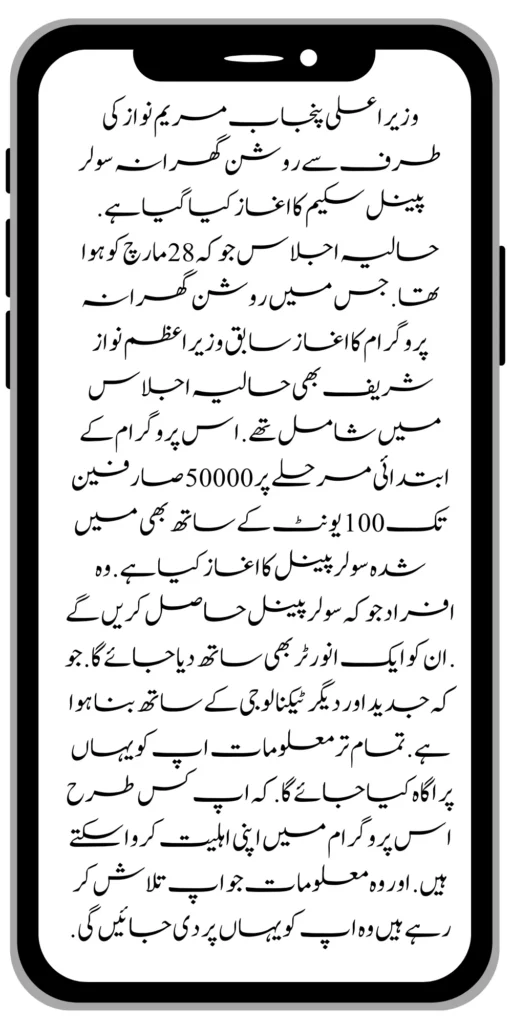 وزیر اعلی پنجاب مریم نواز کی
طرف سے روشن گھرانہ سولر
پینل سکیم کا اغاز کیا گیا ہے.
حالیہ اجلاس جو کہ 28 مارچ کو ہوا
تھا. جس میں روشن گھرانہ
پروگرام کا اغاز سابق وزیراعظم نواز
شریف بھی حالیہ اجلاس
میں شامل تھے. اس پروگرام کے
ابتدائی مرحلے پر 50000 صارفین
تک 100 یونٹ کے ساتھ بھی میں
شدہ سولر پینل کا اغاز کیا ہے. وہ
افراد جو کہ سولر پینل حاصل کریں گے
. ان کو ایک انورٹر بھی ساتھ دیا جائے گا. جو
کہ جدید اور دیگر ٹیکنالوجی کے ساتھ بنا ہوا
ہے. تمام تر معلومات اپ کو یہاں
پر اگاہ کیا جائے گا. کہ اپ کس طرح
اس پروگرام میں اپنی اہلیت کروا سکتے
ہیں. اور وہ معلومات جو اپ تلاش کر
رہے ہیں وہ اپ کو یہاں پر دی جائیں گی.